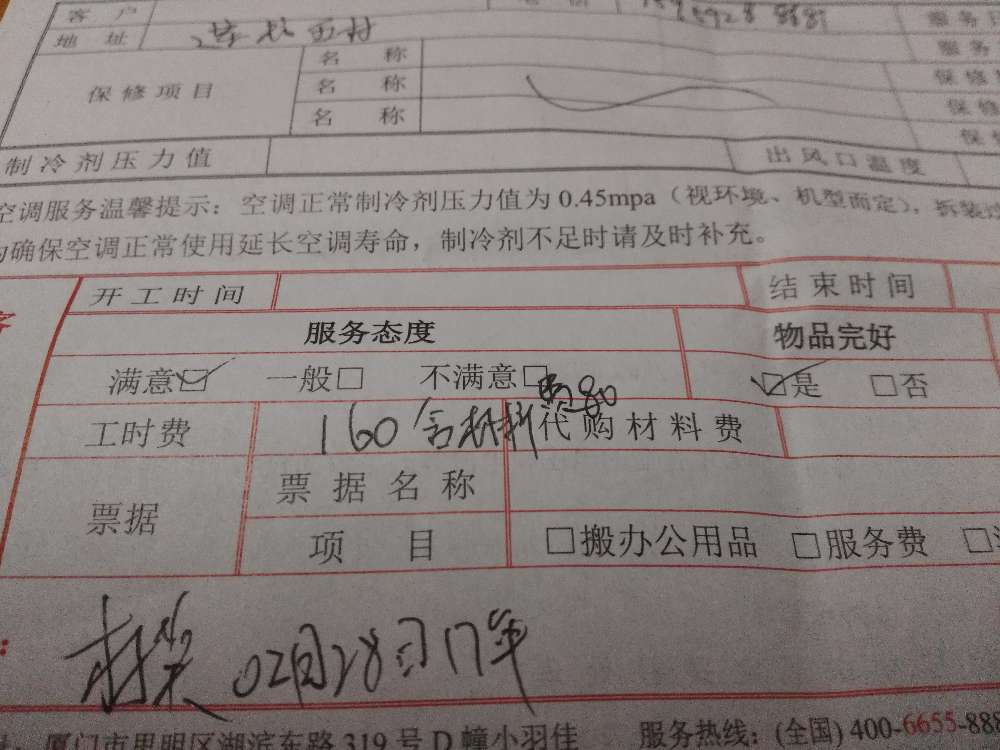 客户
服务
地址 连长西村 服务
名称
保修项目 名称 保修
名称 保修
保修
制冷剂压力值 出风口温度
空调服务温馨提示：空调正常制冷剂压力值为0.45mpa（视环境、机型而定），拆装
确保空调正常使用延长空调寿命，制冷剂不足时请及时补充。
开工时间 结束时间
服务态度 物品完好
满意☑ 一般□ 不满意□ ☑是 □否
工时费 160含材料费80 代购材料费
票据 票据名称
项目 □搬办公用品 □服务费 □
02月28日17年
厦门市思明区湖滨东路319号D幢小羽佳 服务热线：(全国)400-6655-888